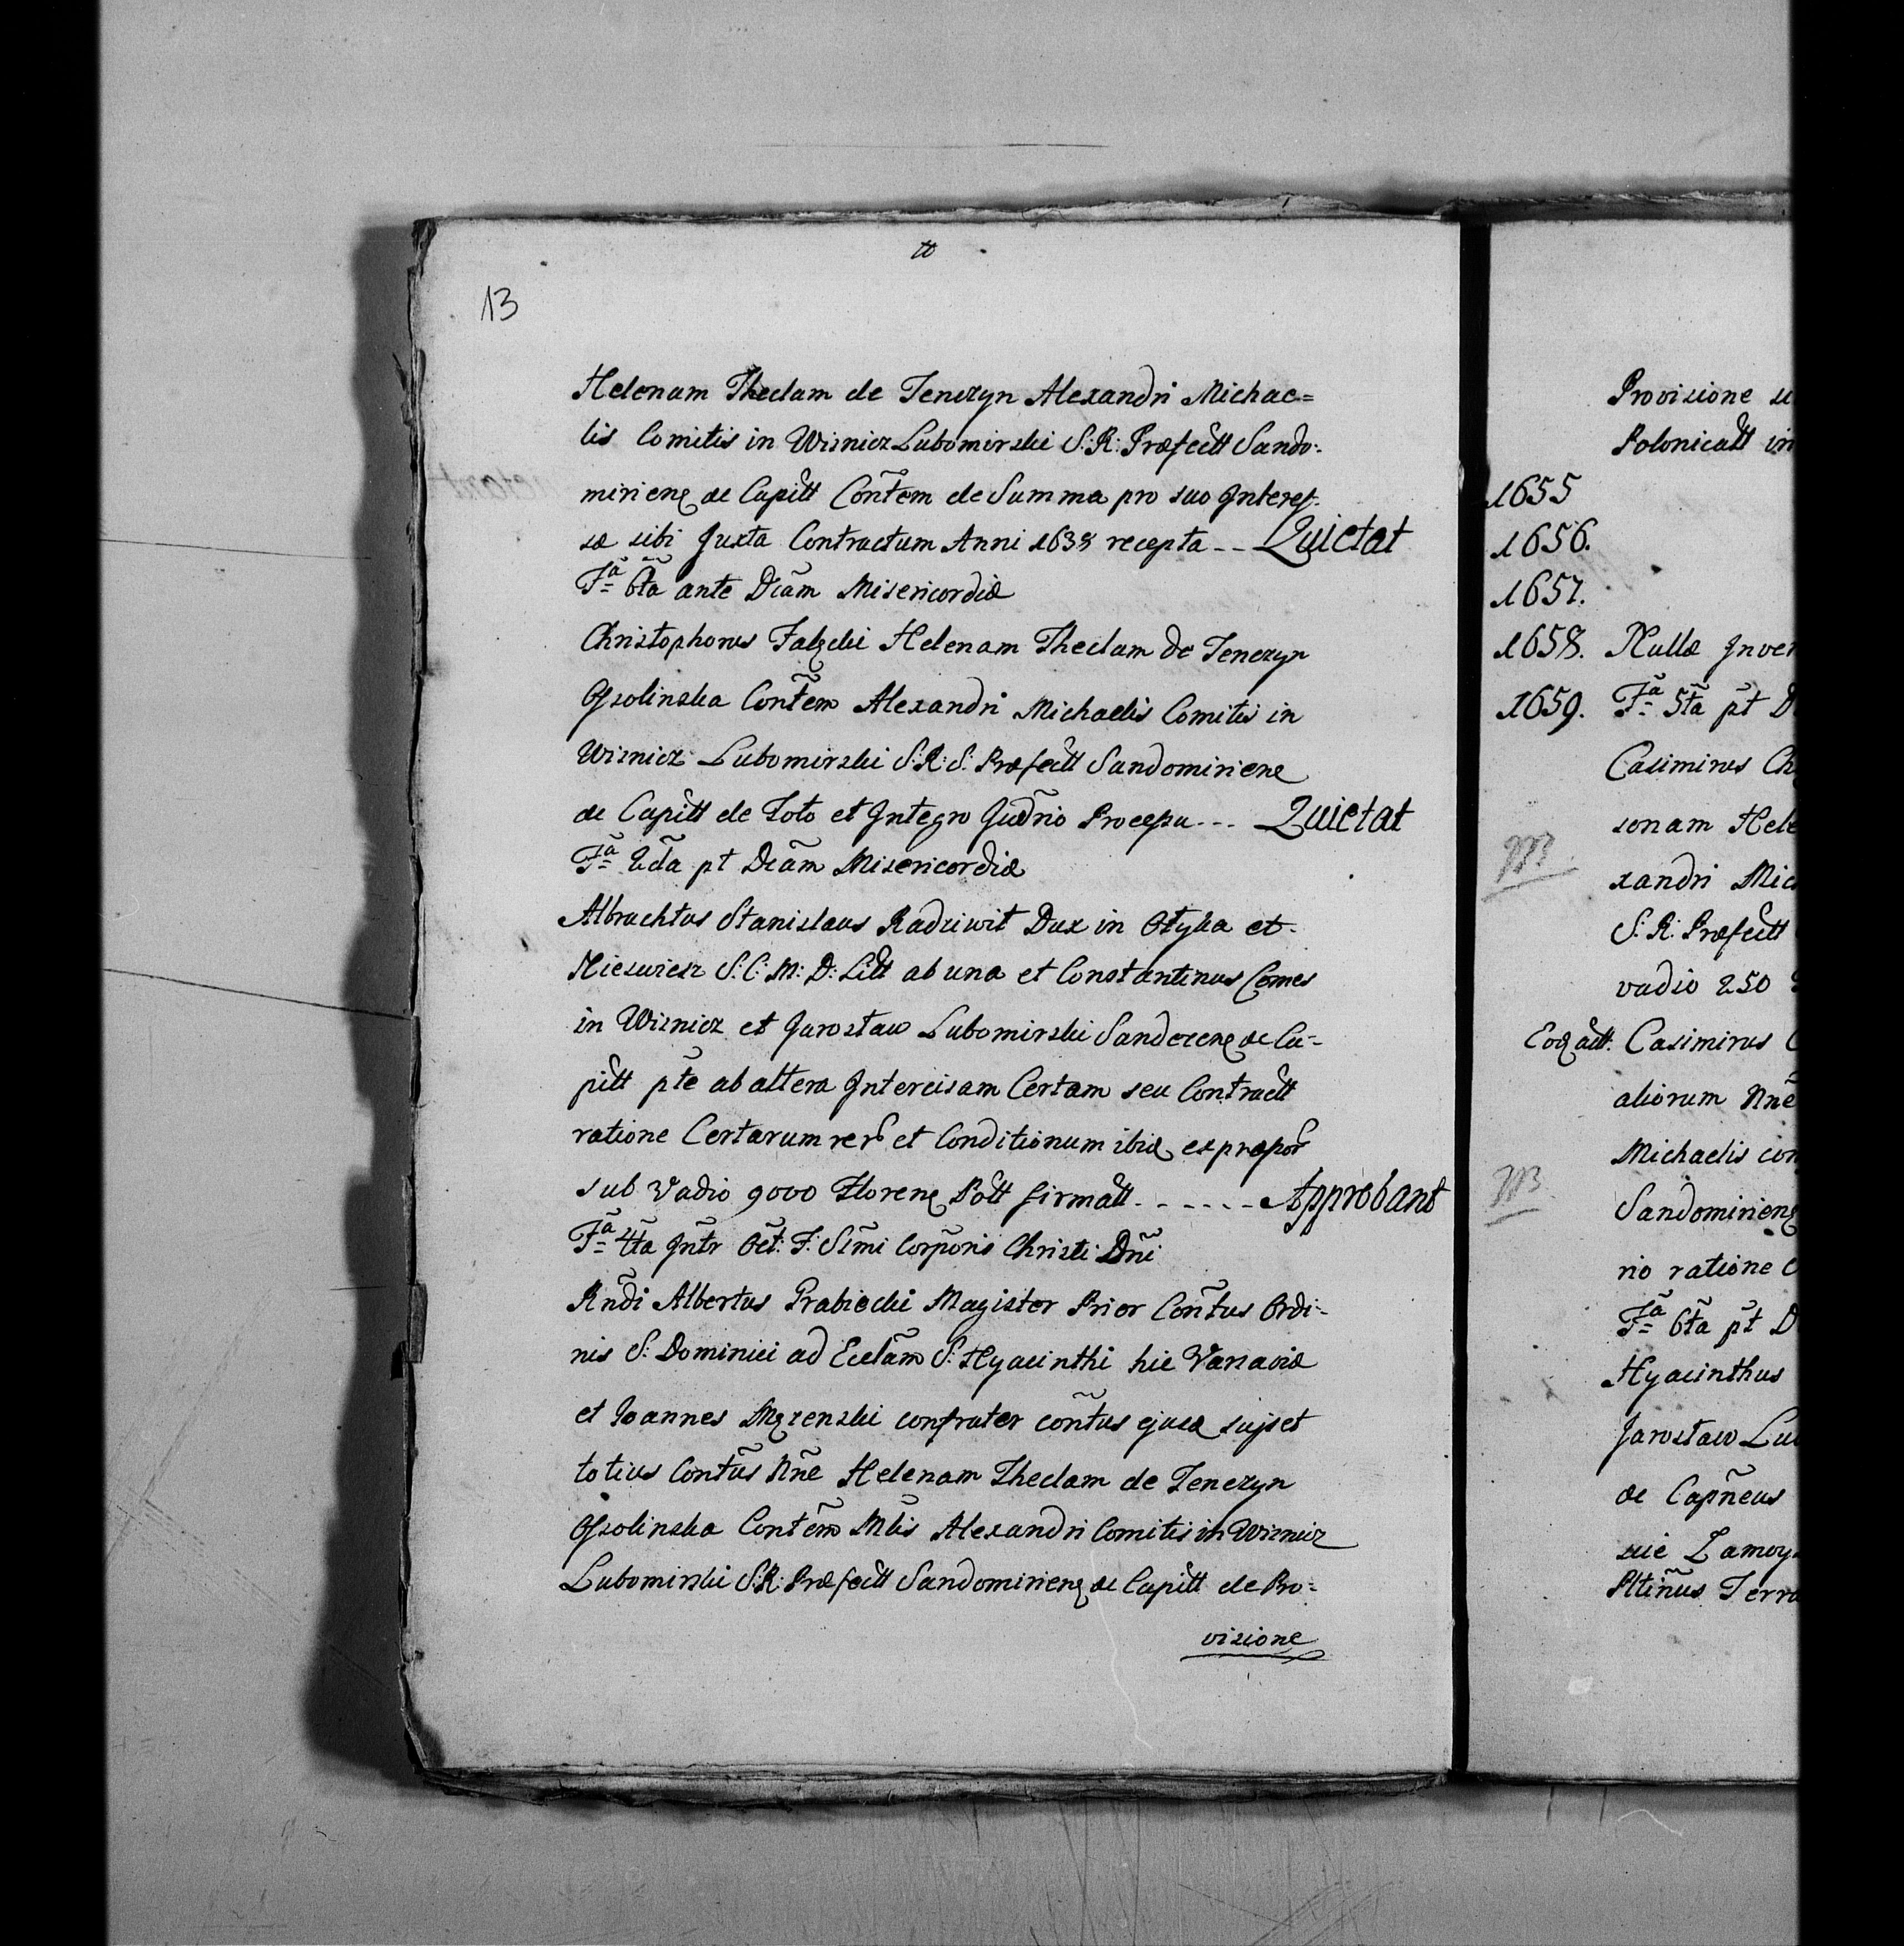 13
Helenam Theclam de Tenczyn Alexandri Michae=
lis Comitis in Wisnicz Lubomirski S: R: Præfectt Sando:
miriens ac Capitt Conͫtem de Summa pro suo Interes:
se sibi Juxta Contractum Anni 1638 recepta -- Quietat
Fã 6tã ante Dcãm Misericordiæ
Christophorus Falęcki Helenam Theclam de Tenczyn
Ossolinska Cont̃em Alexandri Michaelis Comitis in
Wisnicz Lubomirski S: R: S: Præfectt Sandomiriens
ac Capitt de Toto et Integro Jud̃rio Processu --- Quietat
Fã 2dã pt Dcãm Misericordiæ
Albrachtus Stanislaus Radziwit Dux in Otyka et
Nieswiesz S: C: M: D: Litt ab una et Constantinus Comes
in Wisnicz et Jarostaw Lubomirski Sandecens ac Ca-
pitt pt̃e ab altera Intercisam Certam seu Contractt
ratione Certarum rer et Conditionum ibid expræpor
sub Vadio 9000 Florens Poltt firmatt ------ Approbant
Fã 4tã Int̃r Oct̃: F: Sc̃mi Corp̃oris Christi Dñi
Rñdi Albertus Grabiecki Magister Prior Coñtus Ordi-
nis S: Dominici ad Ecclãm S: Hyacinthi hic Varsaviæ
et Joannes confrater coñtus ejusd suo et
totius Coñtus Nñe Helenam Theclam de Tenczyn
Ossolinska Cont̃em Mlis Alexandri Comitis in Wisnicz
Lubomirski S: R: Præfectt Sandomiriens ac Capitt de Pro=
visione
Provisione
Polonicatt in
1655
1656.
1657.
1658. Nullæ Inven
1659. Fã 5tã pt̃ D
Casimirus Ch
sonam Hele
xandri Mic
S: R: Præfectt
vadio 250
Eod actt. Casimirus C
aliorum Nñe
Michaelis com
Sandomiriens
rio ratione C
Fã 6tã pt̃ D
Hyacinthus
Jarostaw Lu
ac Capñeus
Zamoy
Terra